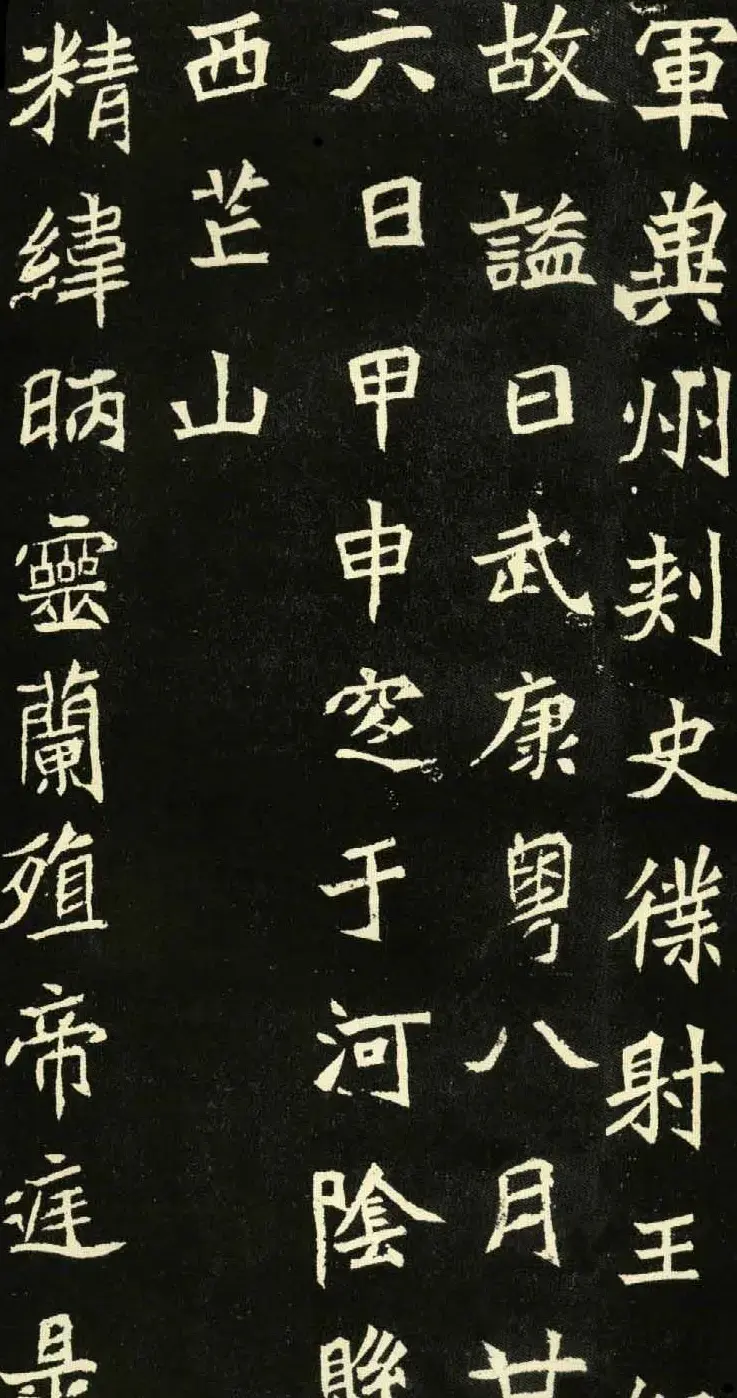 軍冀州刺史僕射王
故謚曰武康粵八月廿
六日甲申窆于河陰縣
西芒山
精緯昞靈蘭殖帝庭